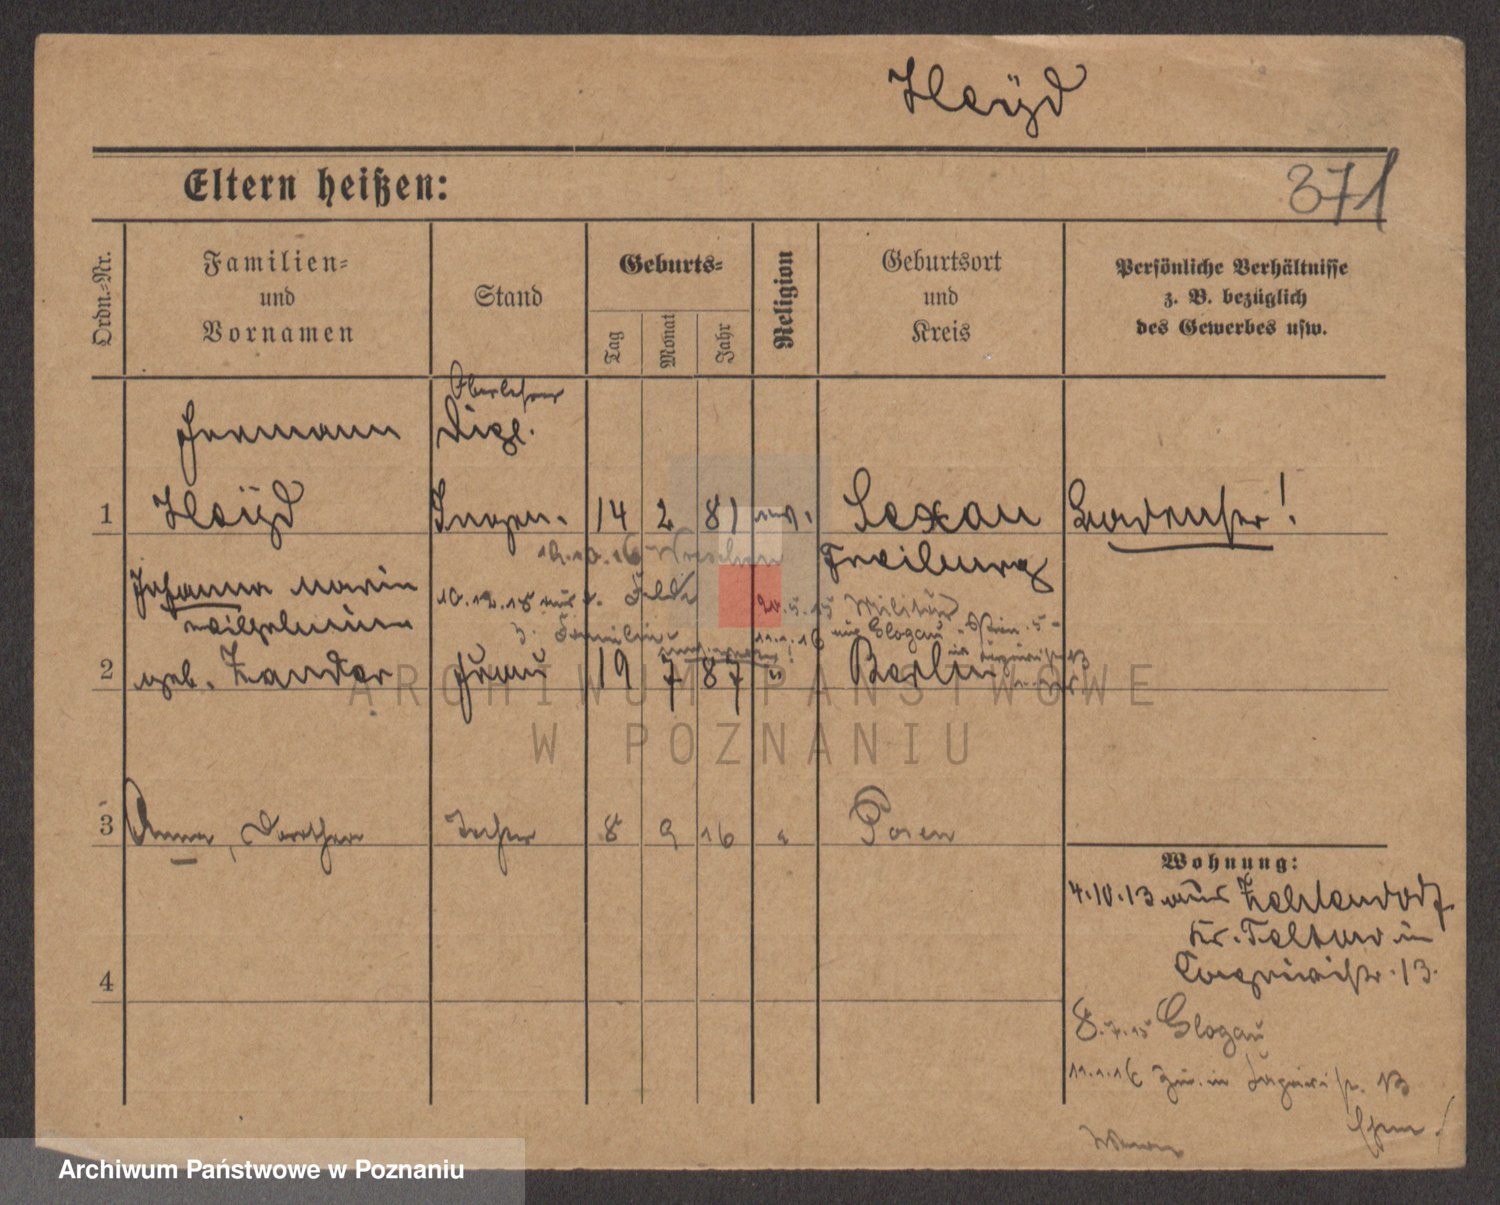 Heÿd
Eltern heißen:
371
Ordn.-Nr.
Familien-
und
Vornamen
Stand
Geburts-
Tag
Monat
Jahr
Religion
Geburtsort
und
Kreis
Persönliche Verhältnisse
z. B. bezüglich
des Gewerbes usw.
Oberlehrer
Hermann Dipl.
1 Heÿd Ingen. 14 2 81 ev. Sexau Badenser!
19.10.16 Wreschen Freiburg
Johanna Marie 10.12.18 aus d. Felde 20.5.15 Militär
Wilhelmine z. Familie 11.1.16 aus Glogau
2 geb. Zander Frau 19 7 87 " Berlin
3 Anna, Dorothea Tochter 8 9 16 " Posen
Wohnung:
4.10.13 aus Zehlendorf
Kr. Teltow in
13.
4
8.7.15 Glogau
11.1.16 zur. in 13
ARCHIWUM PAŃSTWOWE
W POZNANIU
Archiwum Państwowe w Poznaniu